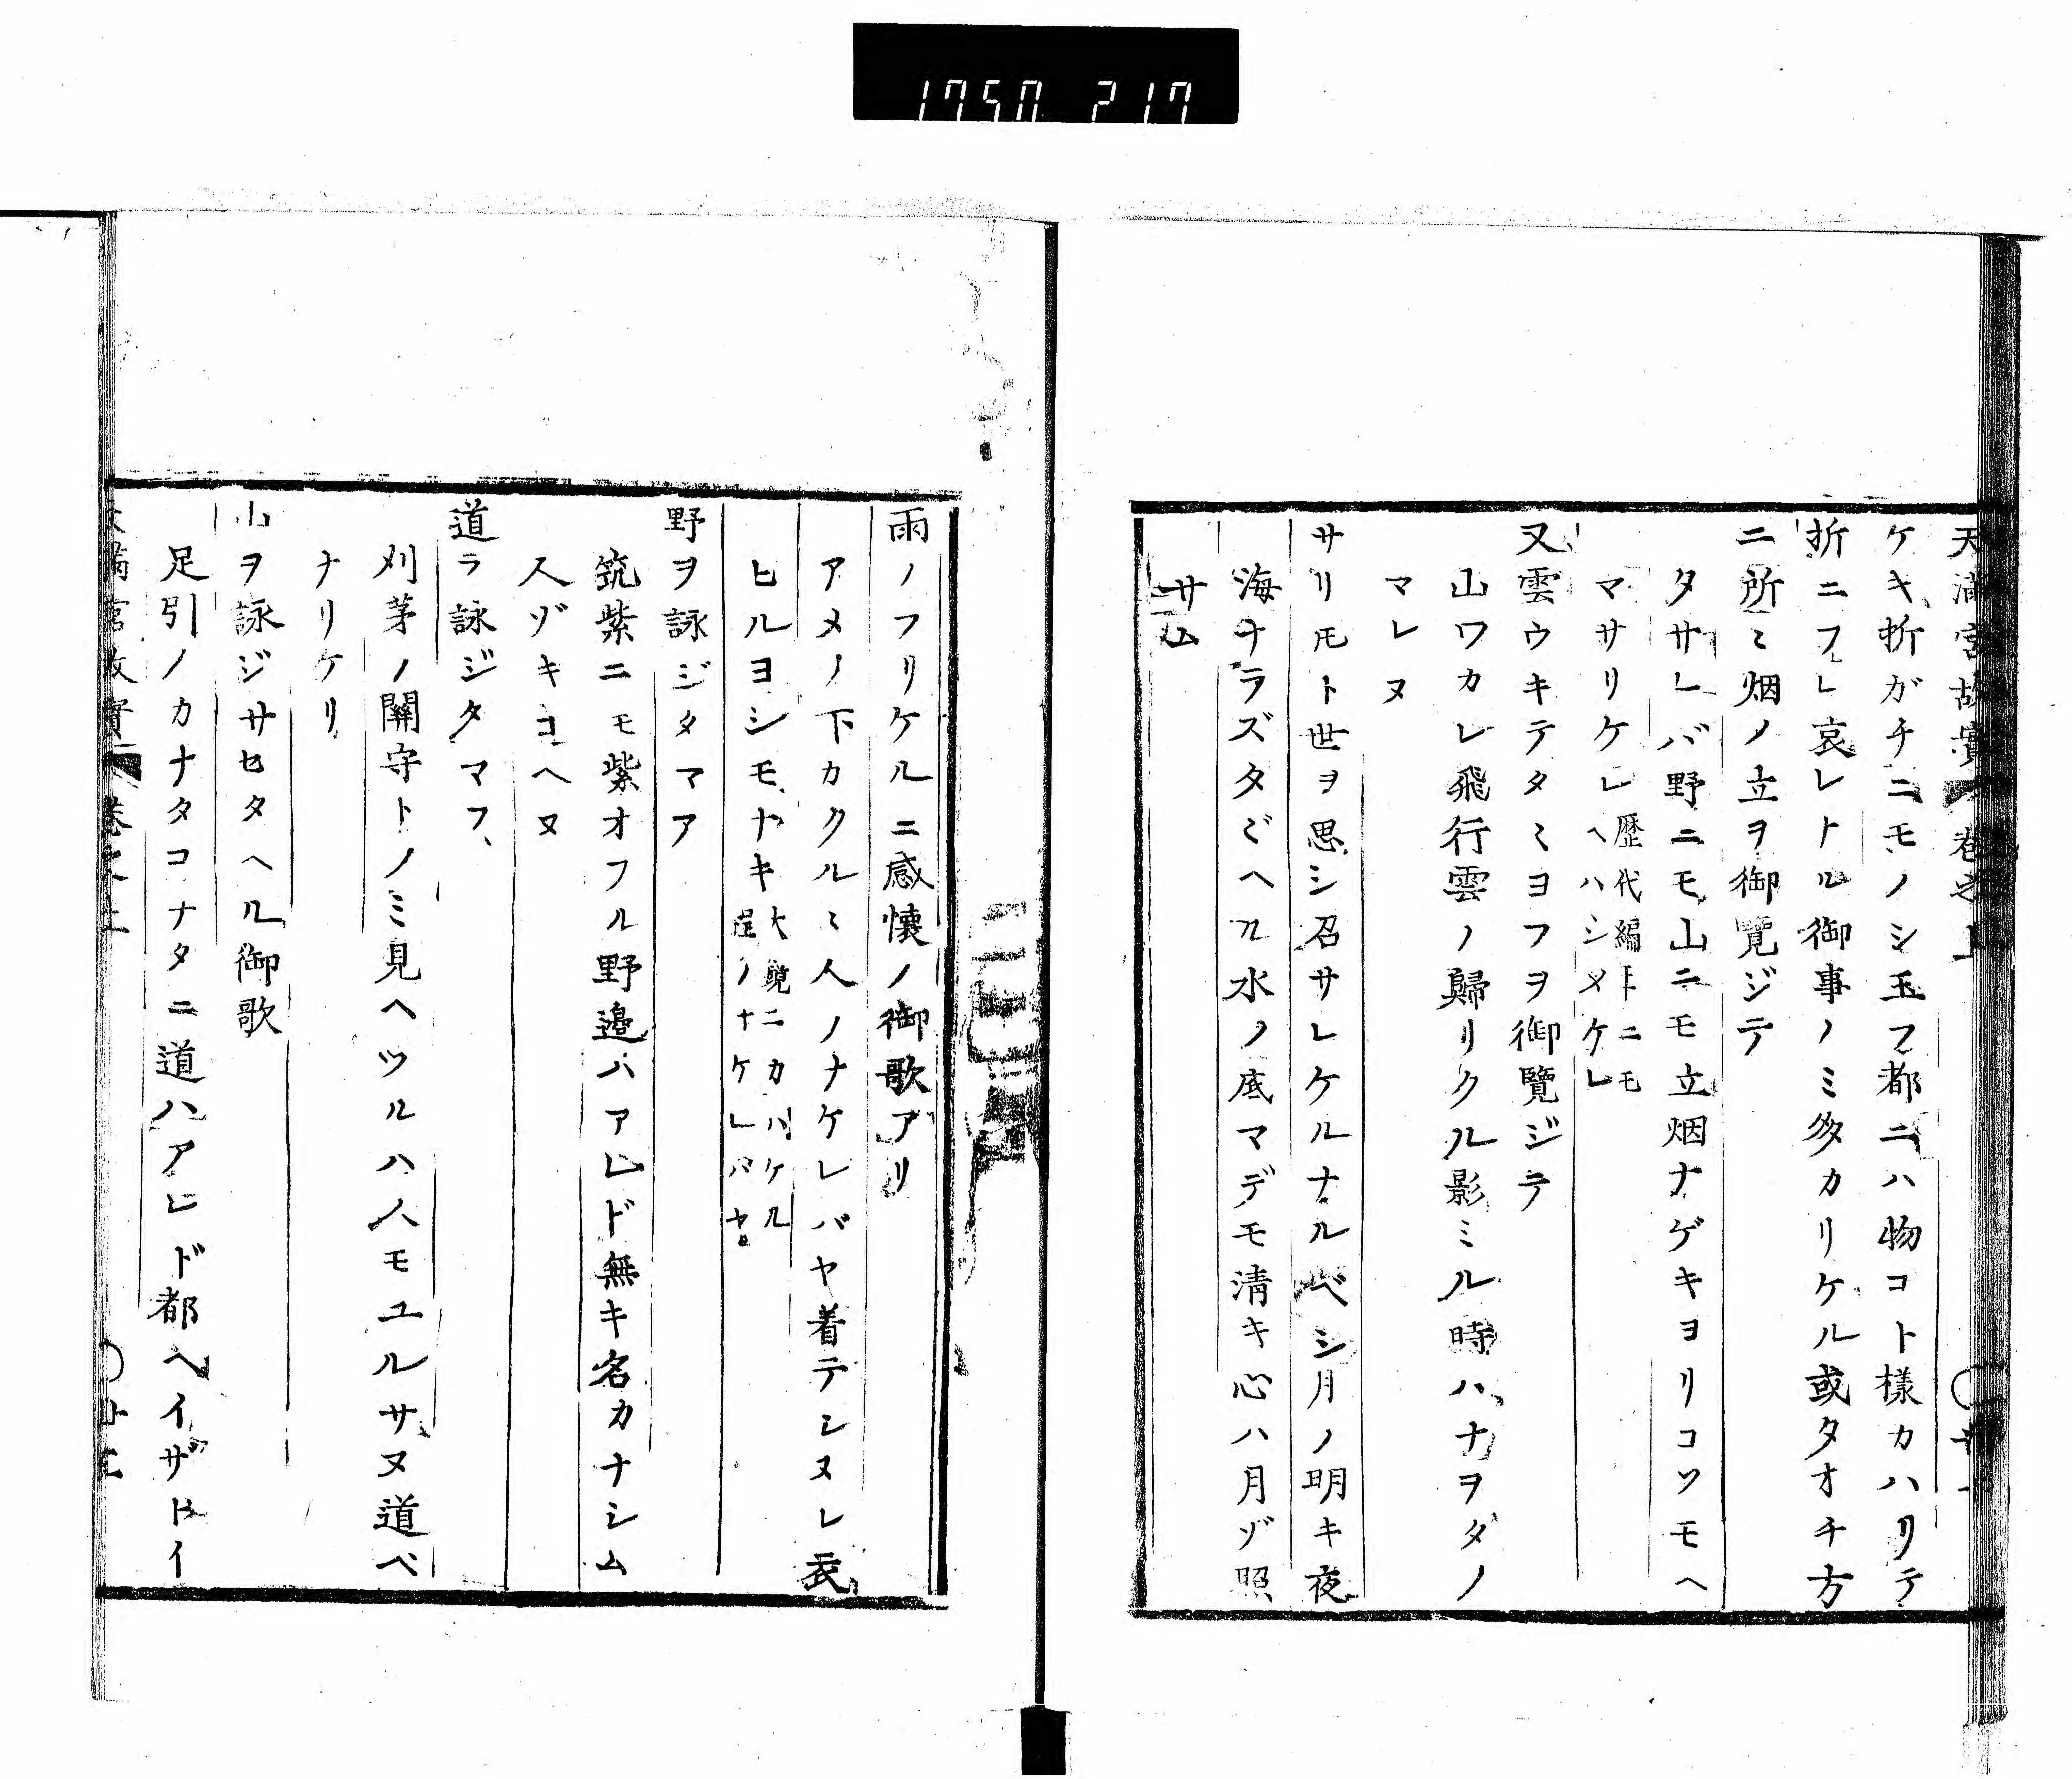 1750 217
天満宮故實 巻之上
ケキ折ガチニモノシ玉フ都ニハ物コト様カハリテ
折ニフレ哀レトル御事ノミ多カリケル或タオチ方
ニ所ミ烟ノ立ヲ御覽ジテ
タサレバ野ニモ山ニモ立烟ナゲキヨリコソモヘ
マサリケレ歴代編年ニモ
ヘハシメケレ
又雲ウキテタミヨフヲ御覽ジテ
山ワカレ飛行雲ノ歸リクル影ミル時ハナヲタノ
マレヌ
サリモト世ヲ思シ召サレケルナルベシ月ノ明キ夜
海ナラズタヾヘル水ノ底マデモ清キ心ハ月ゾ照
サム
雨ノフリケルニ感懐ノ御歌アリ
アメノ下カクルミ人ノナケレバヤ着テシヌレ衣
ヒルヨシモナキ大鏡ニカハケル
程ノナケレバヤ
野ヲ詠ジタマフ
筑紫ニモ紫オフル野邉ハアレド無キ名カナシム
人ゾキコヘヌ
道ヲ詠ジタマフ
刈茅ノ關守トノミ見ヘツルハ人モユルサヌ道ベ
ナリケリ
山ヲ詠ジサセタヘル御歌
足引ノカナタコナタニ道ハアレド都ヘイザトイ
天満宮故實 巻之上